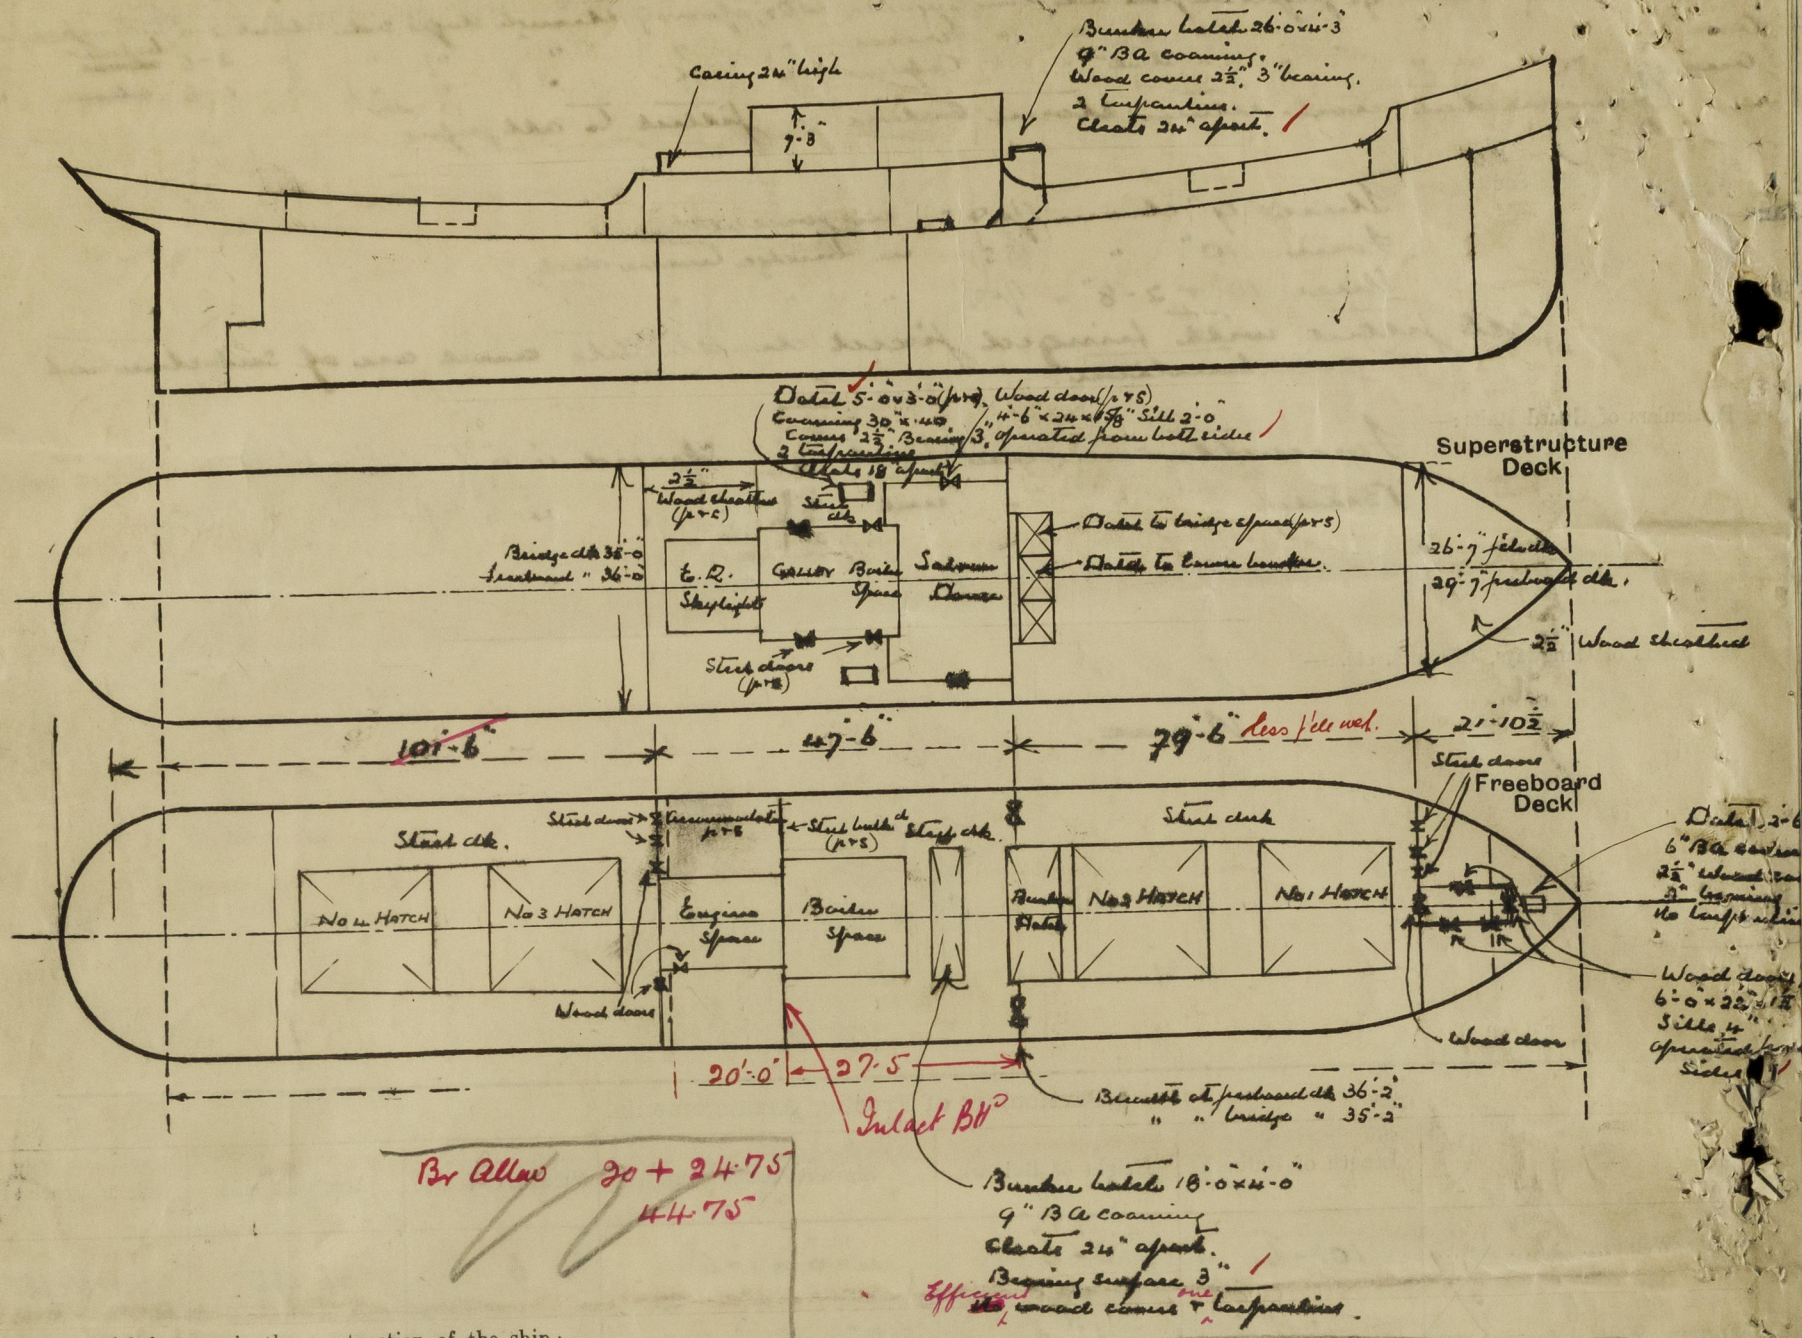 Casing 24" high
Bunker hatch 26'-0"x4'-3"
9" BA coaming.
Wood covers 2½", 3" bearing.
2 tarpaulins.
Cleats 24" apart.
7'-3"
Hatch 5'-0"x3'-0"(p&s).
Coaming 30" x .40
Covers 2½" Bearing 3"
2 tarpaulins
Cleats 18" apart
Wood door(p&s)
4'-6" x 24 x 1⅝" Sill 2'-0"
operated from both sides
Superstructure
Deck
2½"
Wood sheathed
(p&s)
Steel
dk
Bridge dk 35'-0"
freeboard " 36'-0"
E.R.
Skylight
GALLEY
Boiler
Space
Saloon
House
Hatch to bridge space(p&s)
Hatch to lower bunker.
26'-7" f'cle dk
29'-7" freeboard dk.
2½" Wood sheathed
Steel doors
(p&s)
101'-6"
47'-6"
79'-6" less f'cle wel.
21'-10½"
Steel doors
Freeboard
Deck
Steel dk.
Steel doors
Accommodation
p&s
Steel bulkd
(p&s)
Steel dk.
Steel deck
No 4 HATCH
No 3 HATCH
Engine
Space
Boiler
Space
Bunker
Hatch
No 2 HATCH
No 1 HATCH
Wood doors
Hatch 2'-6
6" BA
2½" Wood
3" bearing
No tarpaulin
Wood doors
6'-0" x 22" x 1½
Sills 4"
operated
sides
Wood door
20'-0"
27.5
Intact BHD
Breadth at freeboard dk 36'-2"
" " bridge " 35'-2"
Br Allow 20 + 24.75
44.75
Bunker hatch 18'-0"x4'-0"
9" BA coaming
Cleats 24" apart.
Bearing surface 3"
Efficient wood covers & one tarpaulins.
of the ship: